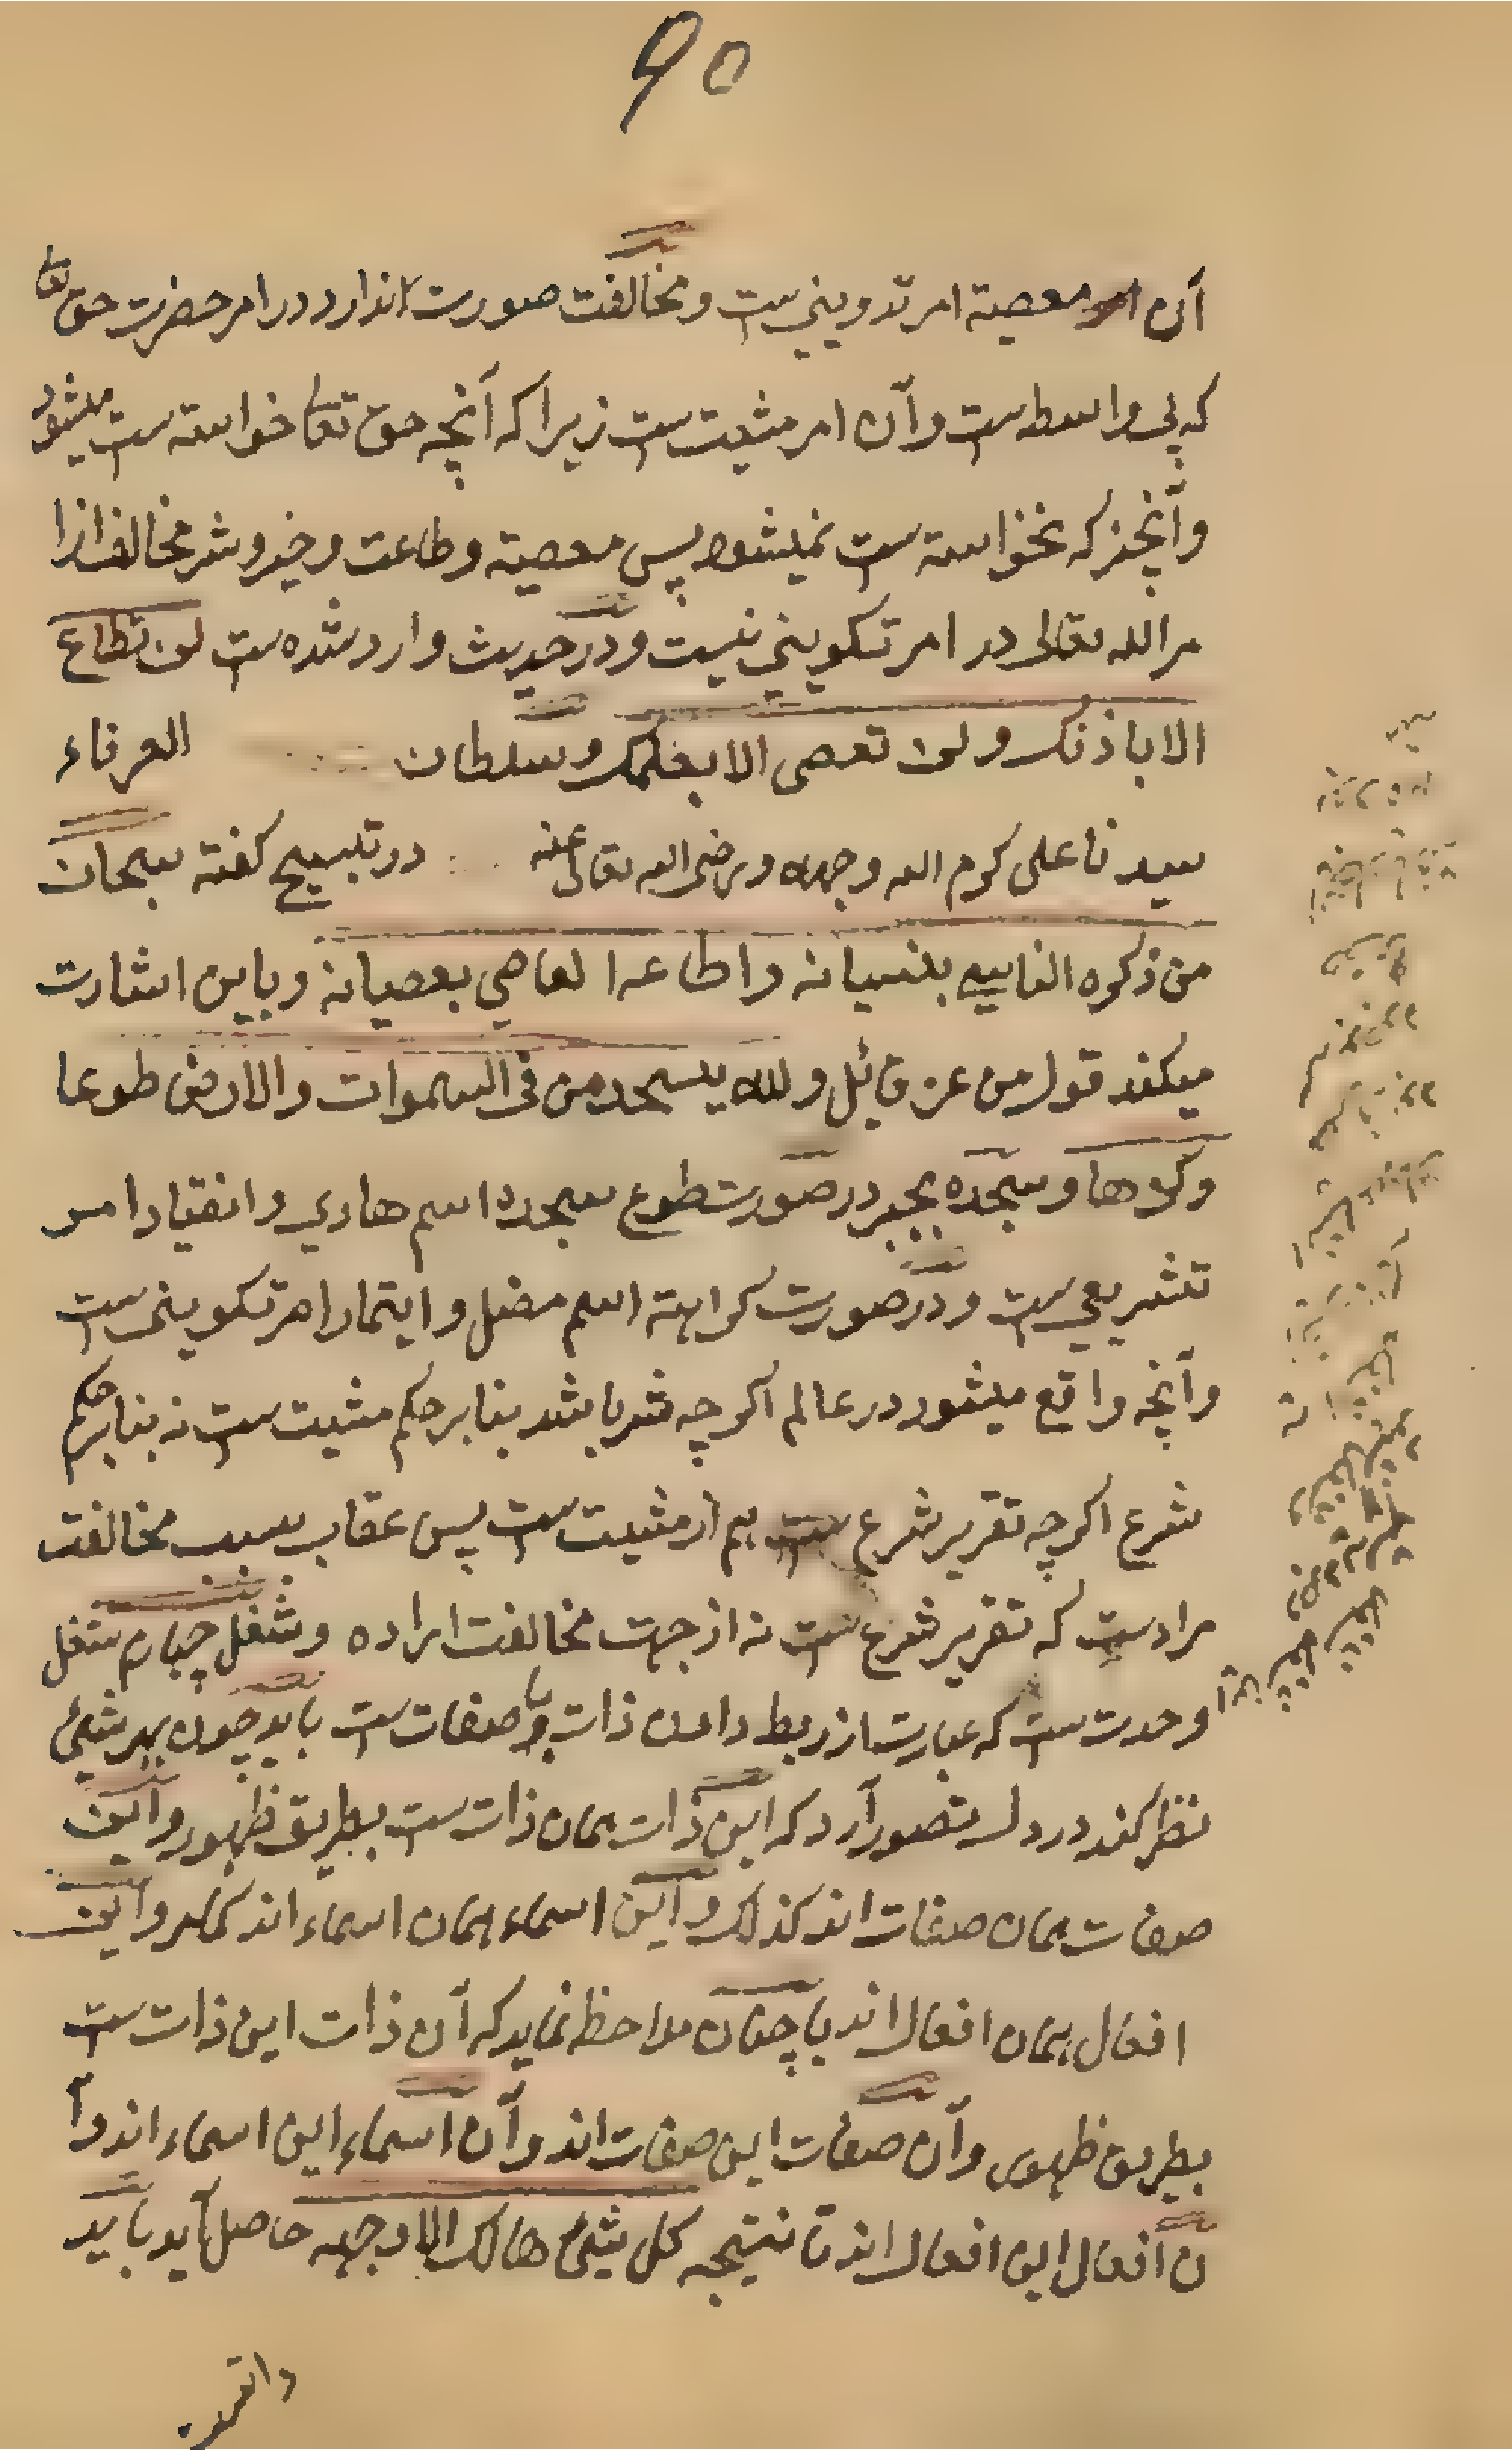 ۹۵
آن معصیة امر تدوینی ست و مخالفت صورت ندارد در امر حضرت حق تعا
که بی واسطه ست و آن امر مشیت ست زیرا که آنچه حق تعا خواسته ست میشود
و آنچیز که نخواسته ست نمیشود پس معصیة و طاعت و خیر و شر مخالف ازا
مر الله تعالی در امر تکوینی نیست و در حدیث وارد شده ست لن تطاع
الا باذنک و لن تعصی الا بعلمک و سلطان العرفاء
سیدنا علی کرم الله وجهه و رضی الله تعالی عنه در تسبیح گفته سبحان
من ذکره الناسی بنسیانه و اطاعه العاصی بعصیانه و باین اشارت
میکند قول من عز قائل و لله یسجد من فی السموات والارض طوعا
وکرها و سجده بجبر در صورت طوع سجده اسم هادی و انقیاد امر
تشریعی ست و در صورت کراهته اسم مضل و ایتمار امر تکوینی ست
و آنچه واقع میشود در عالم اگرچه شر باشد بنابر حکم مشیت ست نه بنابر حکم
شرع اگرچه تقریر شرع ست هم از مشیت ست پس عقاب بسبب مخالفت
مرادست که تقریر شرع ست نه از جهت مخالفت اراده و شغل چهارم شغل
وحدت ست که عبارت از ربط دادن ذات و با صفات ست باید چون بهر شیٔ
نظر کند در دل تصور آرد که این ذات همان ذات ست بطریق ظهور و این
صفات همان صفات اند کذلک و این اسماء همان اسماء اند کماهر و این
افعال همان افعال اند یا چنان ملاحظه نماید که آن ذات این ذات ست
بطریق ظهور و آن صفات این صفات اند و آن اسماء این اسماء اند و آ
ن افعال این افعال اند تا نتیجه کل شیٔ هالک الا وجهه حاصل آید باید